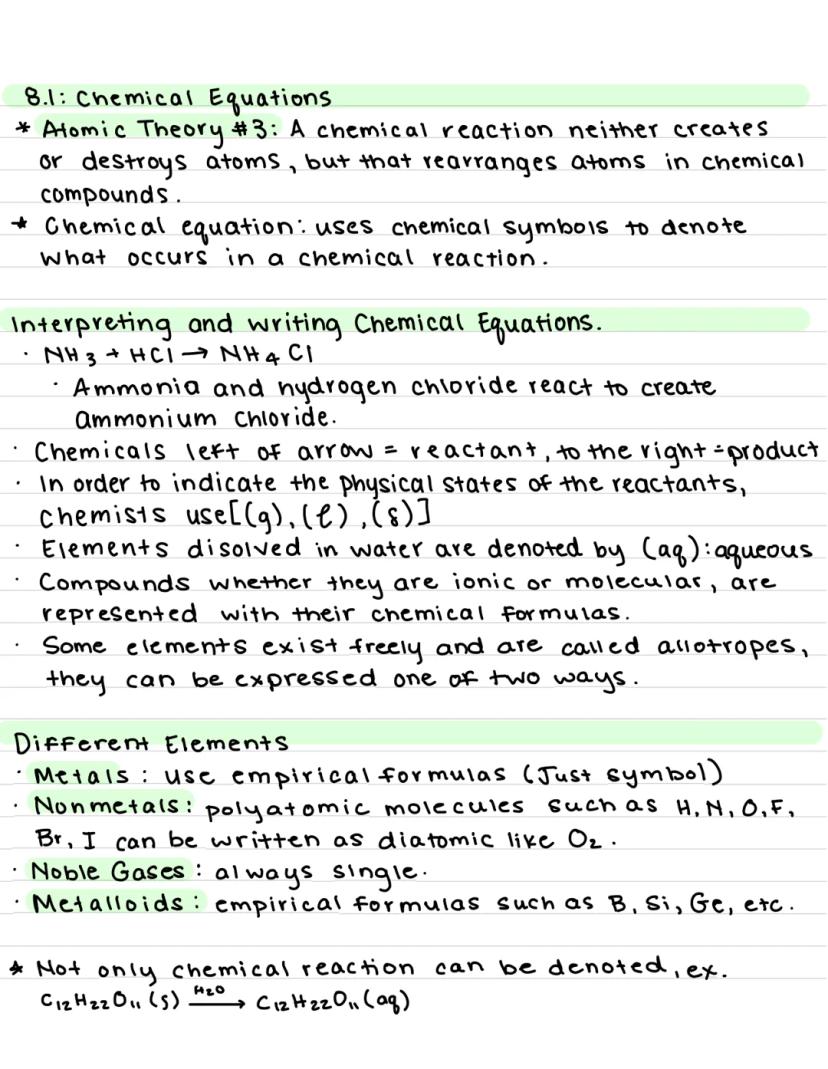 8.1: Chemical Equations
* Atomic Theory #3: A chemical reaction neither creates
or destroys atoms, but that rearranges atoms in chemical
compounds.
* Chemical equation: uses chemical symbols to denote
what occurs in a chemical reaction.
Interpreting and writing Chemical Equations.
· NH3 + HCl → NH4Cl
· Ammonia and hydrogen chloride react to create
ammonium chloride.
· Chemicals left of arrow = reactant, to the right = product
· In order to indicate the physical states of the reactants,
chemists use [(g), (ℓ), (s)]
· Elements disolved in water are denoted by (aq): aqueous
· Compounds whether they are ionic or molecular, are
represented with their chemical formulas.
· Some elements exist freely and are called allotropes,
they can be expressed one of two ways.
Different Elements
· Metals: use empirical formulas (Just symbol)
· Nonmetals: polyatomic molecules such as H, N, O, F,
Br, I can be written as diatomic like O₂.
· Noble Gases: always single.
· Metalloids: empirical formulas such as B, Si, Ge, etc.
* Not only chemical reaction can be denoted, ex.
C₁₂H₂₂O₁₁ (s) H₂O → C₁₂H₂₂O₁₁ (aq)